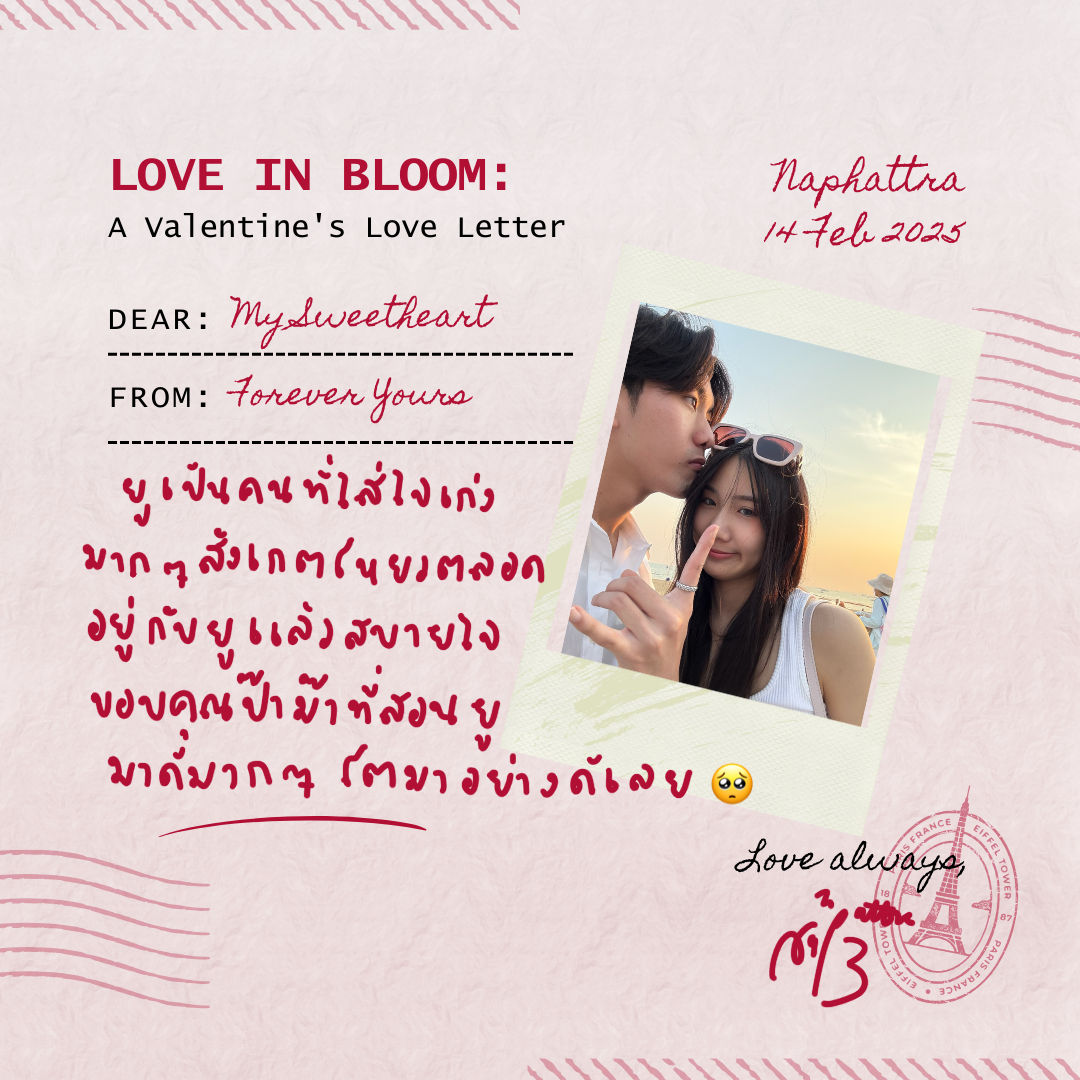 LOVE IN BLOOM:
A Valentine's Love Letter
Naphattra
14 Feb 2025
DEAR: My Sweetheart
FROM: Forever Yours
ยูเป็นคนที่ใส่ใจเก่ง
มากๆ สังเกต
อยู่กับยูแล้วสบายใจ
ขอบคุณป๊าม๊าที่สอนยู
มาดีมากๆ โตมาอย่างดีเลย 🥺
Love always,
PARIS FRANCE
EIFFEL TOWER
18 87
PARIS FRANCE
EIFFEL TOWER